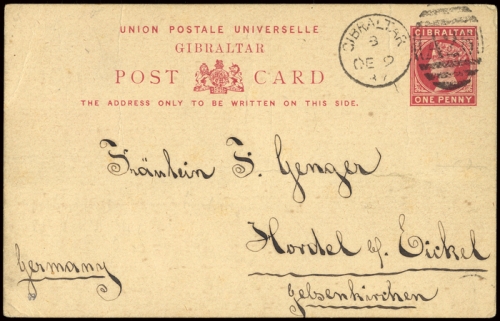 UNION POSTALE UNIVERSELLE
GIBRALTAR
POST CARD
THE ADDRESS ONLY TO BE WRITTEN ON THIS SIDE.
GIBRALTAR
B
DE 9
87
GIBRALTAR
ONE PENNY
Fräulein F. Genger
Hordel b/ Eickel
Gelsenkirchen
Germany